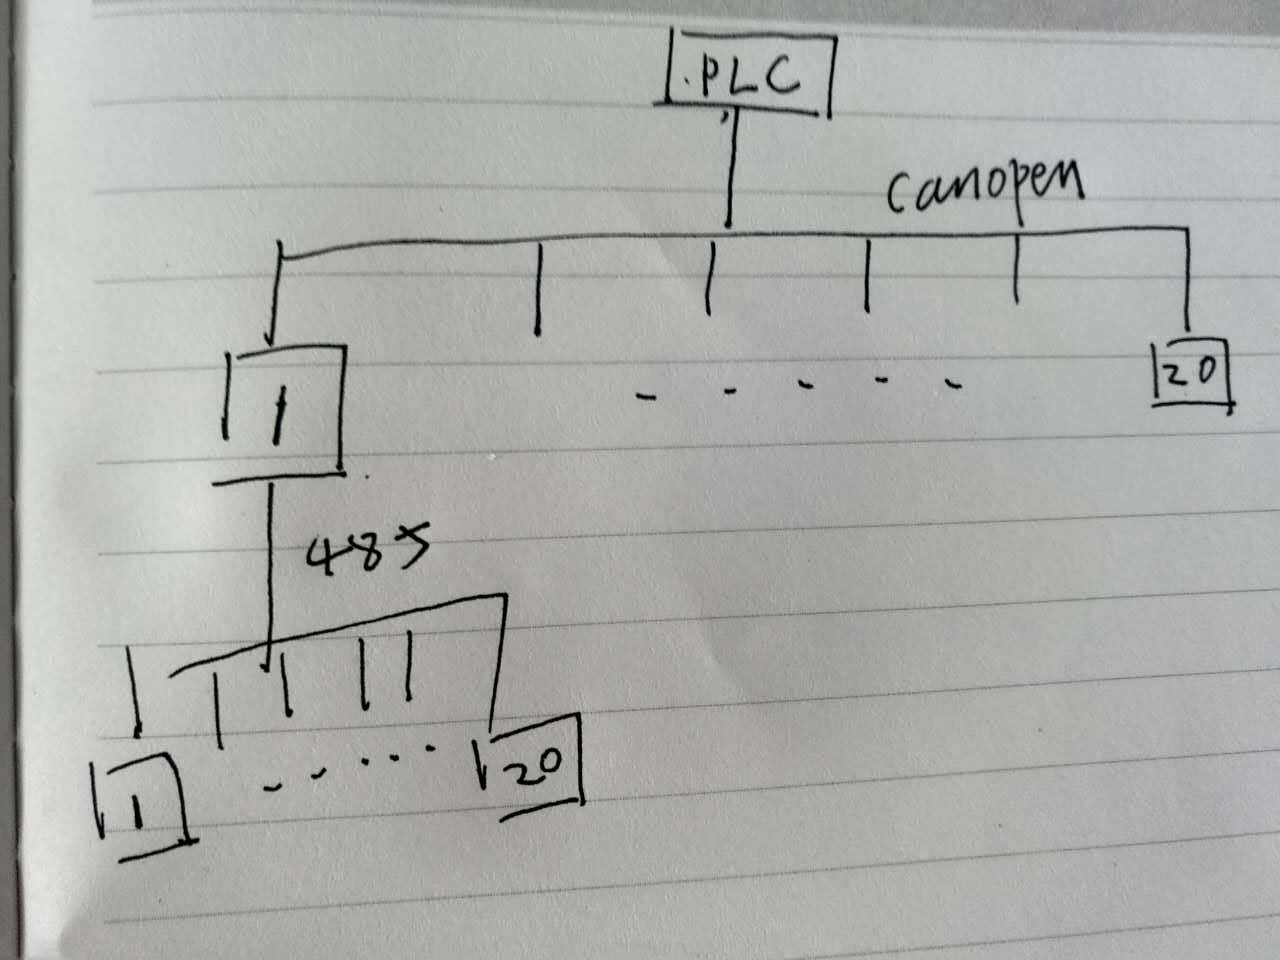 PLC
canopen
1
20
485
1
20